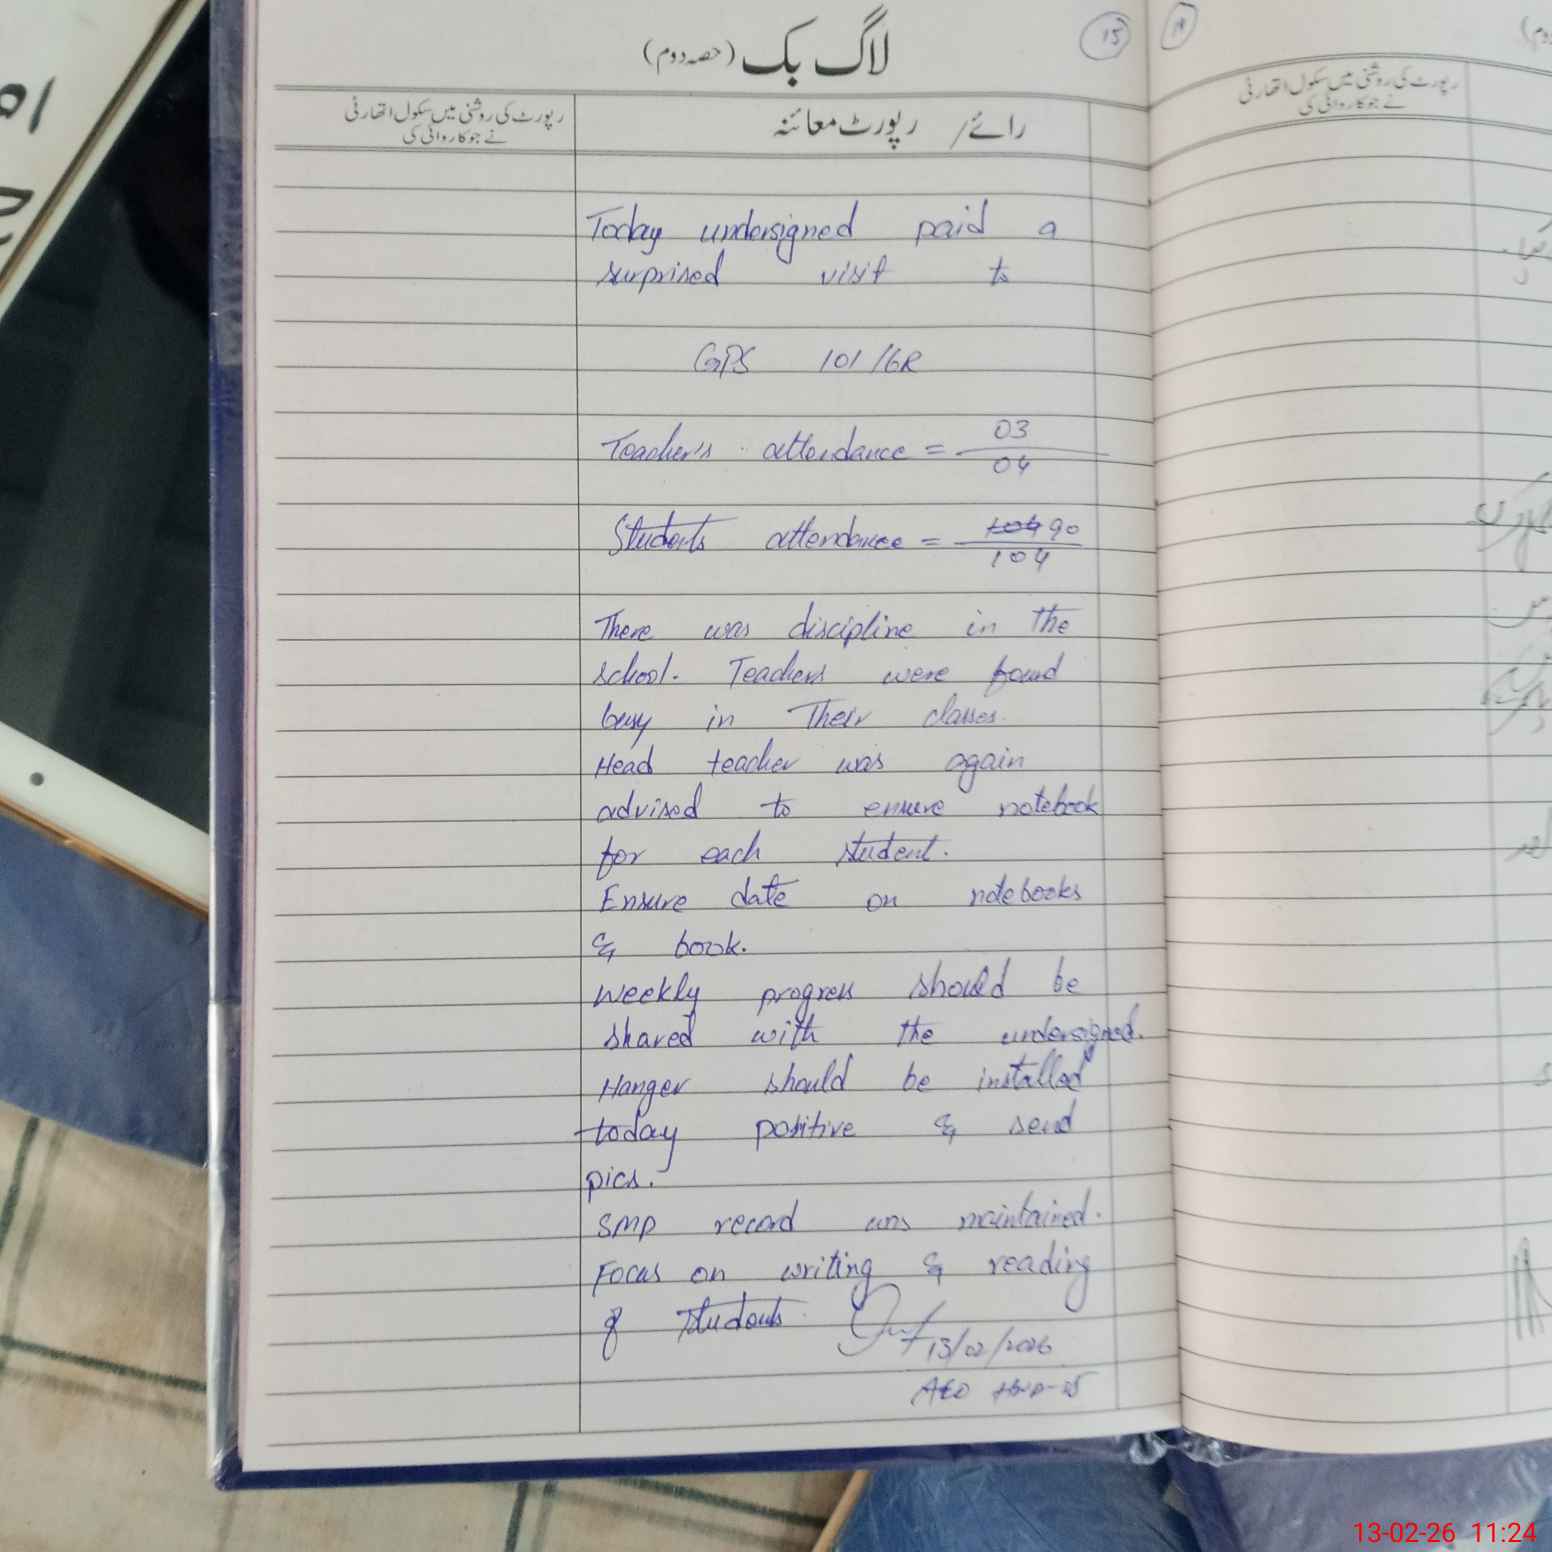 لاگ بک (حصہ دوم)
15
رائے/ رپورٹ معائنہ
رپورٹ کی روشنی میں سکول اتھارٹی
نے جو کاروائی کی
Today undersigned paid a
surprised visit to
GPS 101/6R
Teacher's attendance = 03
04
Students attendance = 104 90
104
There was discipline in the
school. Teachers were found
busy in Their classes.
Head teacher was again
advised to ensure notebook
for each student.
Ensure date on notebooks
& book.
Weekly progress should be
shared with the undersigned.
Hanger should be installed
today positive & send
pics.
SMP record was maintained.
Focus on writing & reading
of students.
13/02/2026
AEO
14
رپورٹ کی روشنی میں سکول اتھارٹی
نے جو کاروائی کی
13-02-26 11:24